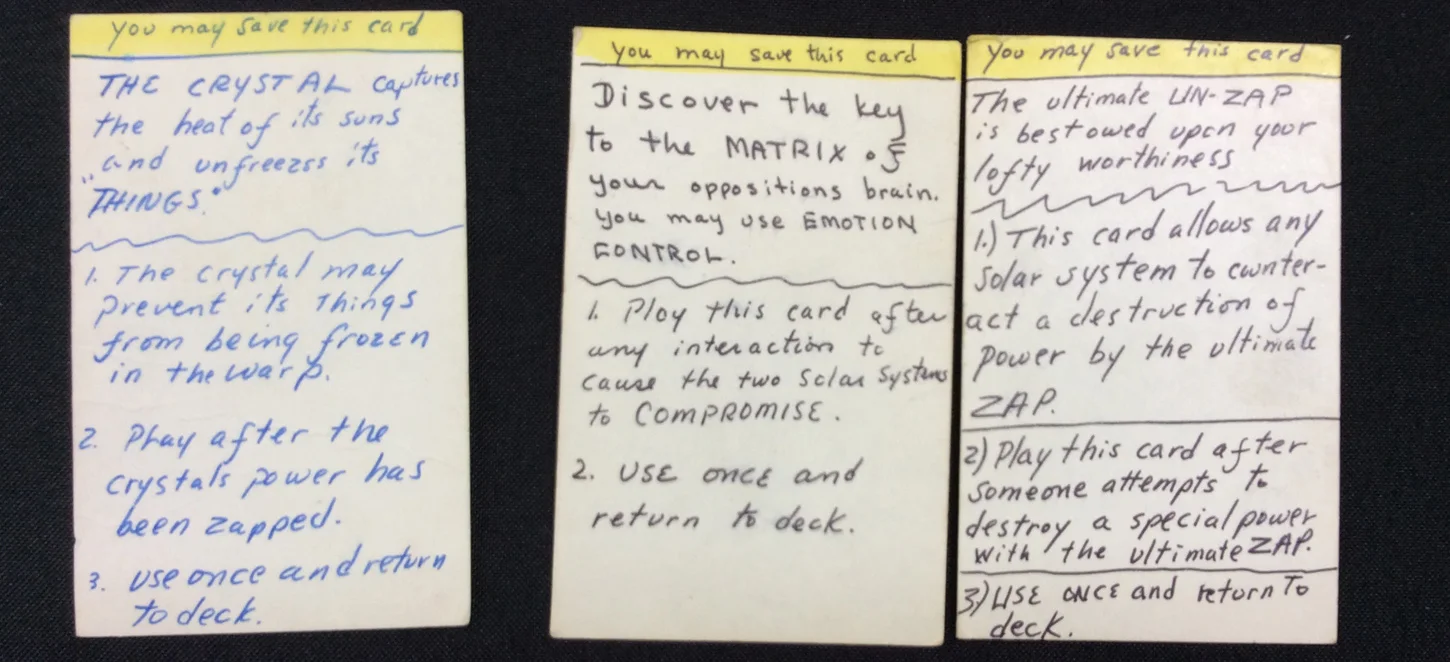 You may save this card
THE CRYSTAL captures
the heat of its suns
"and unfreezes its
THINGS."
1. The crystal may
prevent its Things
from being frozen
in the warp.
2. Play after the
crystals power has
been zapped.
3. use once and return
to deck.
you may save this card
Discover the key
to the MATRIX of
your oppositions brain.
You may use EMOTION
CONTROL.
1. Play this card after
any interaction to
cause the two Solar Systems
to COMPROMISE.
2. USE once and
return to deck.
You may save this card
The ultimate UN-ZAP
is bestowed upon your
lofty worthiness
1.) This card allows any
Solar system to counter-
act a destruction of
power by the ultimate
ZAP.
2) Play this card after
Someone attempts to
destroy a special power
with the ultimate ZAP.
3) USE ONCE and return To
deck.